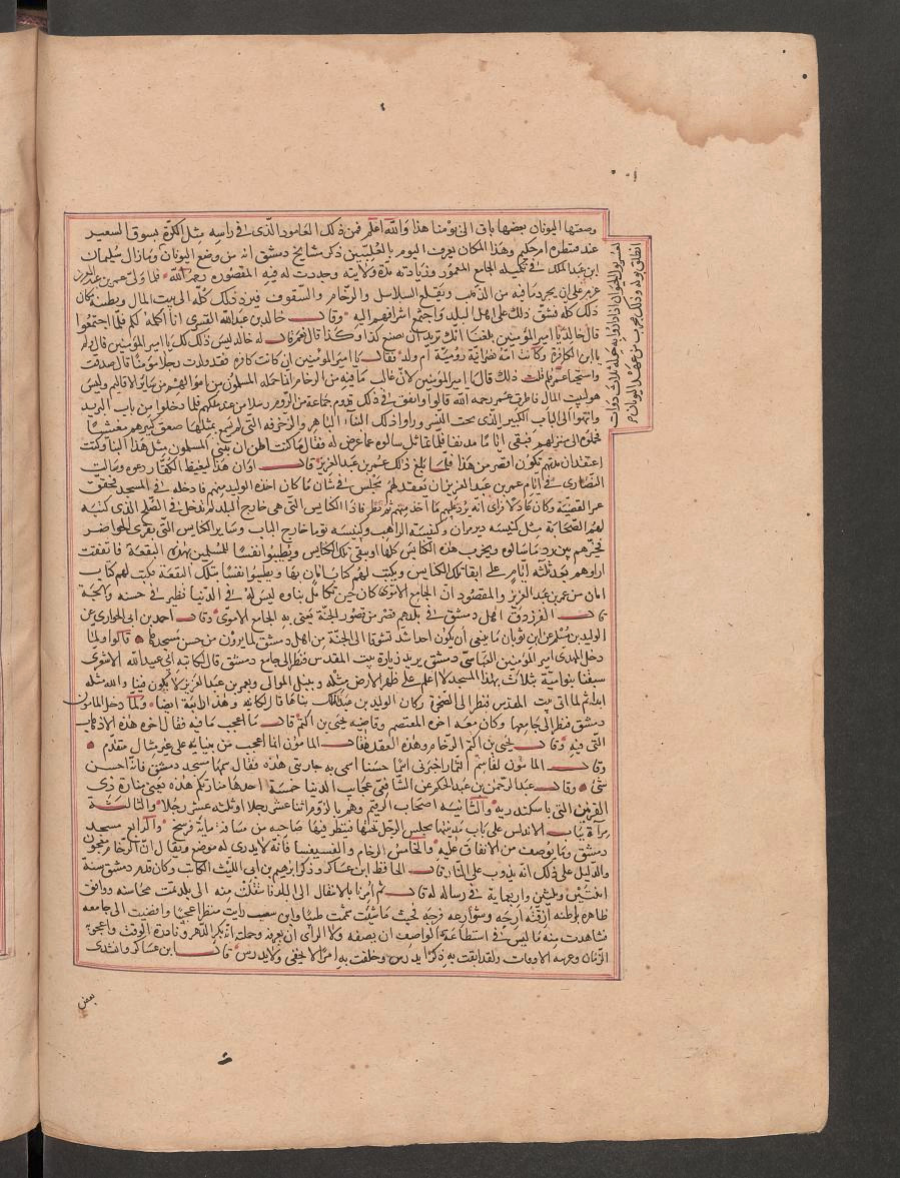 وصعتها اليونان بعضها باق الى يومنا هذا والله اعلم فمن ذلك العامود الذى فى راسه مثل الكرة بسوق السعير
عند قنطرة ام حكيم وهذا المكان يعرف اليوم بالعلبيين ذكر مشايخ دمشق انه من وضع اليونان ومازال سليمان
ابن عبد الملك فى تكميله الجامع المعمور وزيادته مدة ولايته وجددت له فيه المقصوره رحمه الله فلما ولى عمر بن عبد العزيز
عزم على ان يجرد ما فيه من الذهب ويقلع السلاسل والرخام والسقوف فيرد ذلك كله الى بيت المال ويطينه كان
ذلك كله فشق ذلك على اهل البلد واجتمع اشرافهم اليه وقال خالد بن عبد الله القسرى انا اكلمه لكم فلما اجتمعوا
قال خالد يا امير المومنين بلغنا انك تريد ان تصنع كذا وكذا قال نعم فقال له خالد ليس ذلك لك يا امير المومنين قال له
يا ابن الكافرة وكانت امه نصرانية رومية ام ولد فقال يا امير المومنين ان كانت كافره فقد ولدت رجلا مومنا قال صدقت
واستحيا عمر ذلك قال يا امير المومنين لان غالب ما فيه من الرخام انما حمله المسلمون من اموالهم من ساير الاقاليم وليس
هو لبيت المال فاطرق عمر رحمه الله قالوا واتفق فى ذلك قدوم جماعة من الروم رسلا من عند ملكهم فلما دخلوا من باب البريد
وانتهوا الى الباب الكبير الذى تحت النسر وراوا ذلك البناء الباهر والزخرفه التى لم يسمع بمثلها صعق كبيرهم مغشيا
فحملوه الى منزلهم فبقى اياما مدنفا فلما تماثل سالوه عما عرض له فقال ما كنت اظن ان يبنى المسلمون مثل هذا البنا وكنت
اعتقد ان مدتهم تكون اقصر من هذا فلما بلغ ذلك عمر بن عبد العزيز قال اوان هذا ليغيظ الكفار دعوه وسالت
النصارى فى ايام عمر بن عبد العزيز ان يعقد لهم مجلس فى شان ما كان اخذه الوليد منهم فادخله فى المسجد فحقق
عمر القضية وكان عادلا فراى انه يرد عليهم ما اخذ منهم ثم نظر فاذا الكنايس التى هى خارج البلد لم تدخل فى الصلح الذى كتبه
لهم الصحابة مثل كنيسه ديرمران وكنيسة الراهب وكنيسه توما خارج الباب وساير الكنايس التى بقرى الحواضر
فخيرهم بين رد ما سالوه ويخرب هذه الكنايس كلها او يبقى تلك الكنايس ويطيبوا نفسا للمسلمين بهذه البقعة فاتفقت
اراوهم بعد ثلثة ايام على ابقا تلك الكنايس ويكتب لهم كتاب امان بها ويطيبوا نفسا بتلك البقعة فكتب لهم كتاب
امان من عمر بن عبد العزيز والمقصود ان الجامع الاموى كان حين تكامل بناوه ليس له فى الدنيا نظير فى حسنه وبهجته
قال الفرزدق اهل دمشق فى بلدهم قصر من قصور الجنة يعنى به الجامع الاموى وقال احمد بن ابى الحوارى عن
الوليد بن مسلم عن ابن ثوبان ما ينبغى ان يكون احدا شد تشوقا الى الجنة من اهل دمشق لما يرون من حسن مسجدهم قالوا ولما
دخل المهدى امير المومنين العباسى دمشق يريد زيارة بيت المقدس فنظر الى جامع دمشق قال لكاتبه ابى عبيد الله الاشعرى
سبقنا بنو امية بثلاث بهذا المسجد لا اعلم على ظهر الارض مثله وبنبل الموالى وبعمر بن عبد العزيز لا يكون فينا والله مثله
ابدا ثم لما اتى بيت المقدس فنظر الى الصخرة وكان الوليد بن عبد الملك بناها قال لكاتبه وهذا الرابعة ايضا ولما دخل المامون
دمشق فنظر الى جامعها وكان معه اخوه المعتصم وقاضيه يحيى بن اكثم قال ما اعجب ما فيه فقال اخوه هذه الاذهاب
التى فيه وقال يحيى بن اكثم الرخام وهذه العقد فقال المامون انما اعجب من بنيانه على غير مثال متقدم
وقال المامون لقاسم التمار اخبرنى اسما حسنا اسمى به جاريتى هذه فقال سمها مسجد دمشق فانه احسن
شئ وقال عبد الرحمن بن عبد الحكم عن الشافعى عجايب الدنيا خمسة احدها منارتكم هذه يعنى منارة ذى
القرنين التى باسكندريه والثانيه اصحاب الرقيم وهم بالروم اثنا عشر رجلا او ثلثه عشر رجلا والثالثة
مرآة بباب الاندلس على باب مدينتها يجلس الرجل تحتها فينظر فيها صاحبه من مسافة ماية فرسخ والرابع مسجد
دمشق وما يوصف من الانفاق عليه والخامس الرخام والفسيفسا فانه لا يدرى له موضع ويقال ان الرخام معجون
والدليل على ذلك انه يذوب على النار قال الحافظ ابن عساكر وذكر ابراهيم بن ابى الليث الكاتب وكان قدم دمشق سنة
اثنتين وثلثين واربعماية فى رساله له قال ثم امرنا بالانتقال الى البلد فانتقلت منه الى بلد تمت محاسنه ووافق
ظاهره باطنه ازقته ارجه وشوارعه فرجه فحيث ما شيت شممت طيبا واين سعيت رايت منظرا عجيبا وافضيت الى جامعه
فشاهدت منه ما ليس فى استطاعة الواصف ان يصفه ولا الراى ان يعرفه وجملته انه بكر الدهر ونادرة الوقت واعجوبة
الزمان وغريبه الاوقات ولقد ابقت به ذكرا يدرس وخلفت به امرا لا يخفى ولا يدرس قال ابن عساكر وانشدنى
بعض